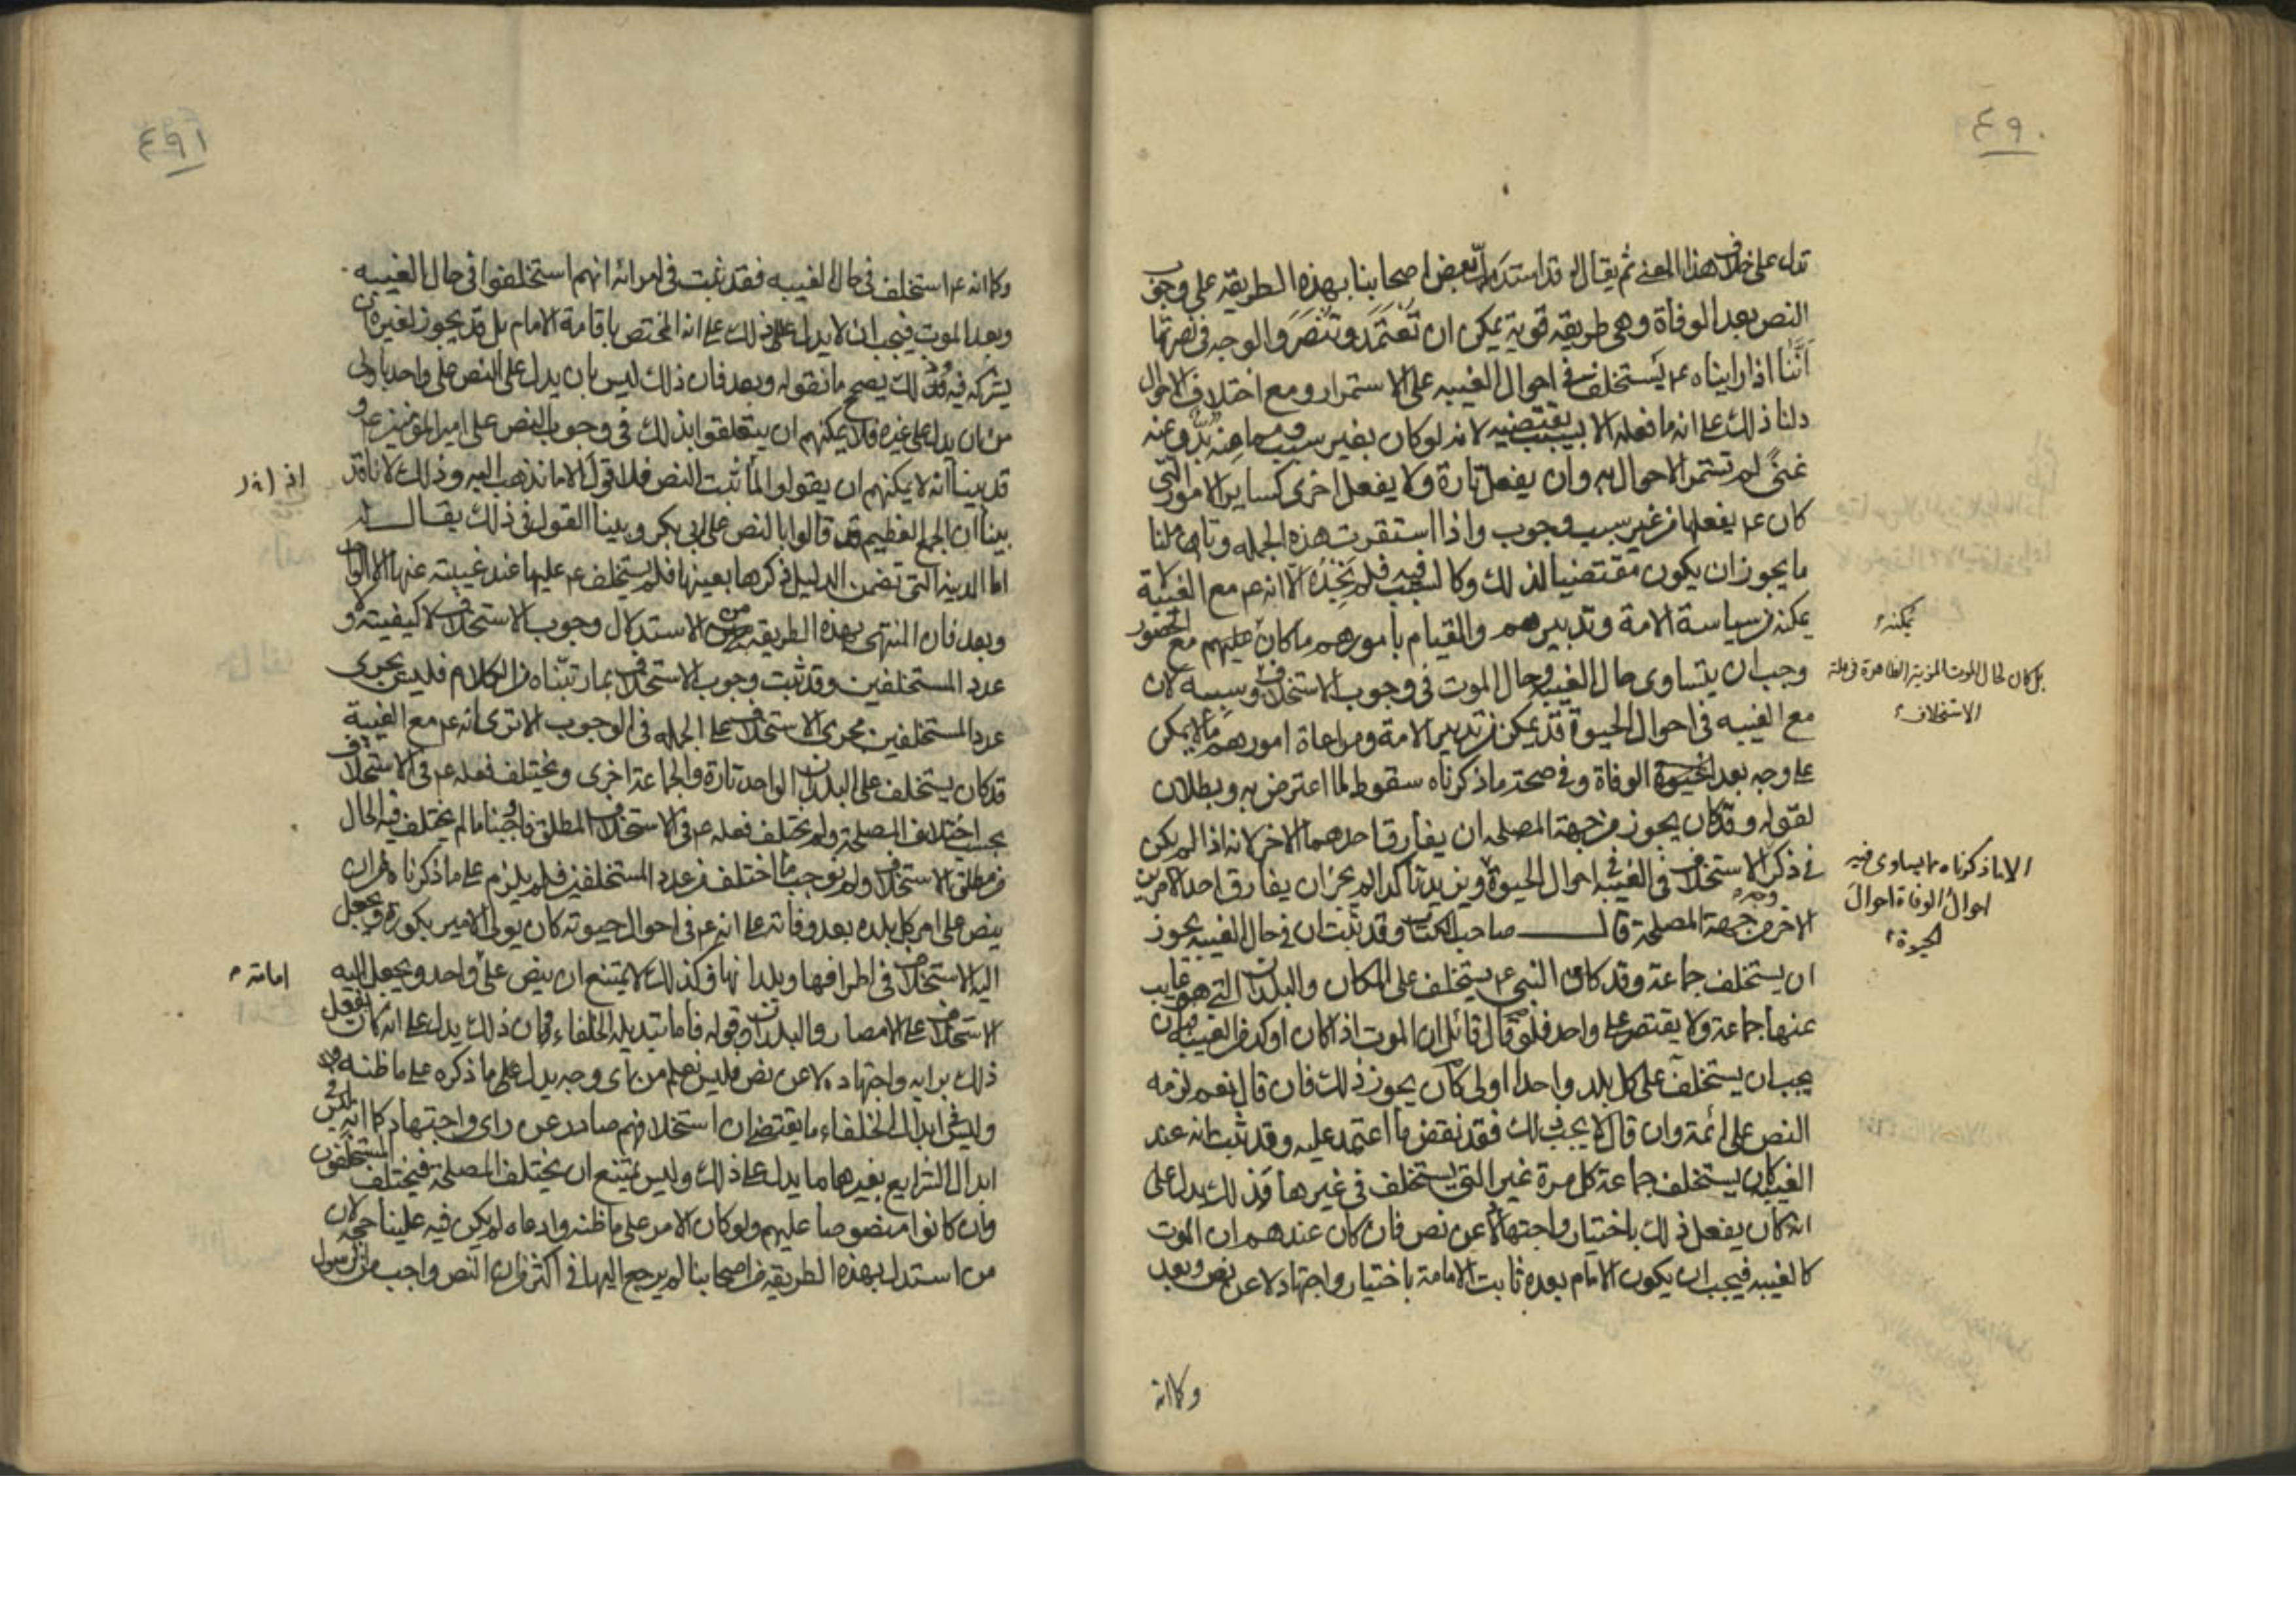 ٤٩٠
تدل على خلاف هذا المعنى ثم يقال له قد استدل بعض اصحابنا بهذه الطريقة على وجوب
النص بعد الوفاة وهى طريقة قوية يمكن ان تعتمد وتنصر والوجه في نصرتها
اننا اذا رايناه عم يستخلف في احوال الغيبه على الاستمرار ومع اختلاف الاحوال
دلنا ذلك على انه ما فعله الا بسبب يقتضيه لانه لو كان بغير سبب ومما منه بد وعنه
غنىً لم تستمر الاحوال به وان يفعل تارة ولا يفعل اخرى كساير الامور التى
كان عم يفعلها من غير سبب وجوب واذا استقرت هذه الجمله وتاملنا
ما يجوز ان يكون مقتضيا لذلك وكالسبب فيه فلم نجده الا انه عم مع الغيبة لا
يمكنه من سياسة الامة وتدبيرهم والقيام بأمورهم ما كان عليهم مع الحضور
يمكنه
وجب ان يتساوى حال الغيبه وحال الموت في وجوب الاستخلاف وسببه لان
بل كان لحال الموت المزية الظاهرة في علة
الاستخلاف
مع الغيبه في احوال الحيوة قد يمكن من تدبير الامة ومراعاة امورهم ما لا يمكن
على وجه بعد الوفاة وفي صحة ما ذكرناه سقوط لما اعترض به وبطلان
لقوله وقد كان يجوز من جهة المصلحه ان يفارق احدهما الاخر لانه اذا لم يكن
في ذكر الاستخلاف في الغيبه في احوال الحيوة ويزيد تأكدا لم يجز ان يفارق احد الامرين
الا ما ذكرناه مما يساوى فيه
احوالُ الوفاة احوالَ
الحيوة
الاخر من جهة المصلحة قال صاحب الكتاب وقد ثبت ان في حال الغيبه يجوز
ان يستخلف جماعة وقد كان النبي عم يستخلف على المكان والبلدان التي هو غايب
عنها جماعة ولا يقتصر على واحد فلو قال قائل ان الموت اذا كان اوكد من الغيبه فبان
يجب ان يستخلف على كل بلد واحدا اولى كان يجوز ذلك فان قال نعم لزمه
النص على ائمة وان قال لا يجب ذلك فقد نقض ما اعتمد عليه وقد ثبت انه عند
الغيبه كان يستخلف جماعة كل مرة غير التي يستخلف في غيرها فذلك يدل على
انه كان يفعل ذلك باختيار واجتهاد لا عن نص فان كان عندهم ان الموت
كالغيبه فيجب ان يكون الامام بعده ثابت الامامة باختيار واجتهاد لا عن نص وبعد
وكما انه
٤٩١
وكما انه عم استخلف في حال الغيبه فقد ثبت في امرائه انهم استخلفوا في حال الغيبه
وبعد الموت فيجب ان لا يدل ذلك على انه المختص باقامة الامام بل قد يجوز لغيره ان
يشركه فيه وكل ذلك يصحح ما نقوله وبعد فان ذلك ليس بان يدل على النص على واحد باولى
من ان يدل على غيره فلا يمكنهم ان يتعلقوا بذلك في وجوب النص على امير المؤمنين عم و
قد بينا انه لا يمكنهم ان يقولوا لما ثبت النص فلا قول الا ما نذهب اليه وذلك لانا قد
بينا ان الجمع العظيم قد قالوا بالنص على ابى بكر وبينا القول في ذلك يقال له
اما المدينه التي تضمن الدليل ذكرها بعينها فلم يستخلف عم عليها عند غيبته عنها الا الواحد
وبعد فان المنتهى بهذه الطريقة من الاستدلال وجوب الاستخلاف لا كيفيته ولا
عدد المستخلفين وقد ثبت وجوب الاستخلاف بما رتبناه من الكلام فليس يجرى
عدد المستخلفين مجرى الاستخلاف على الجمله في الوجوب الا ترى انه عم مع الغيبة
قد كان يستخلف على البلدان الواحد تارة والجماعة اخرى ويختلف فعله عم في الاستخلاف
بحسب اختلاف المصلحة ولم يختلف فعله عم في الاستخلاف المطلق فاوجبنا ما لم يختلف فيه الحال
من مطلق الاستخلاف ولم نوجب ما اختلف من عدد المستخلفين فلم يلزم على ما ذكرناه من ان
ينص على امر كل بلده بعد وفاته على انه عم في احوال حيوته كان يولى الامير بكورة ويجعل
اليه الاستخلاف في اطرافها وبلدانها وكذلك لا يمتنع ان ينص على واحد ويجعل اليه
امامته
الاستخلاف على الامصار والبلدان وقوله فاما تبديله الخلفاء وان ذلك يدل على انه كان يفعل
ذلك برايه واجتهاده لا عن نص فليس نعلم من اى وجه يدل على ما ذكره على ما ظنه
وليس في ابدال الخلفاء ما يقتضى ان استخلافهم صادر عن راى واجتهاد كما انه ليس في
ابدال الشرايع بغيرها ما يدل على ذلك وليس يمتنع ان يختلف المصلحة فيختلف المستخلفون
وان كانوا منصوصا عليهم ولو كان الامر على ما ظنه وادعاه لم يكن فيه علينا حجه لان
من استدل بهذه الطريقه من اصحابنا لم يرجع اليها في اكثر من ان النص واجب من الرسول